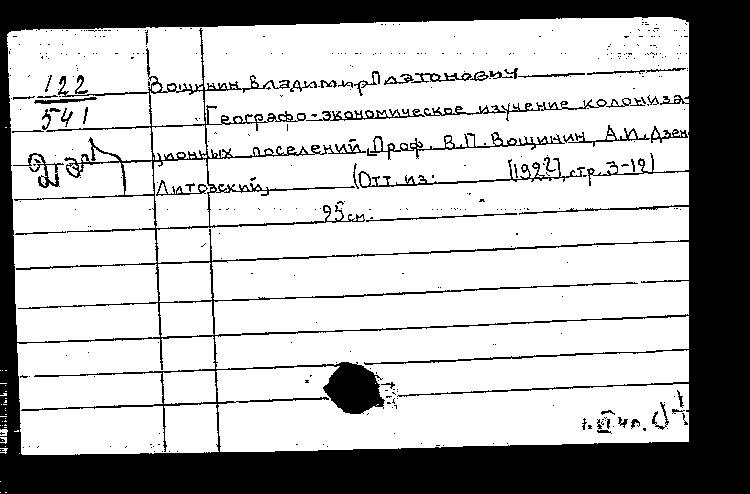 122
541
Вощинин, Владимир Платонович
Географо-экономическое изучение колониза-
ционных поселений, Проф. В.П. Вощинин, А.И. Дзен
Литовский,      (Отт. из:      [1922], стр. 3-12)
25 см.
1.VI 41г.